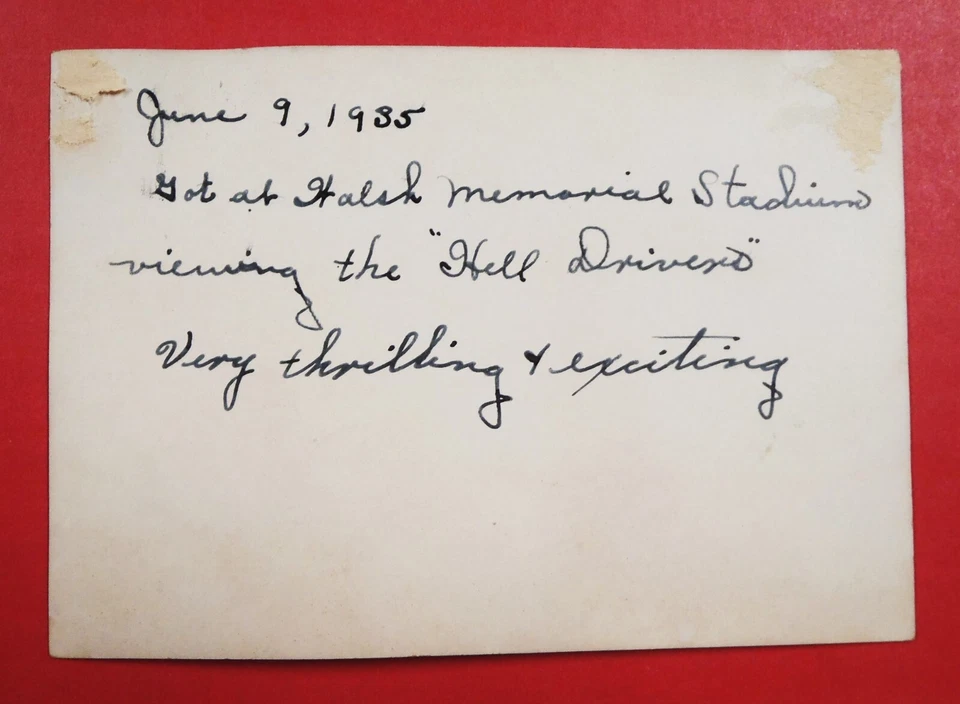 June 9, 1935
Got at Walsh Memorial Stadium
viewing the "Hell Drivers"
Very thrilling & exciting